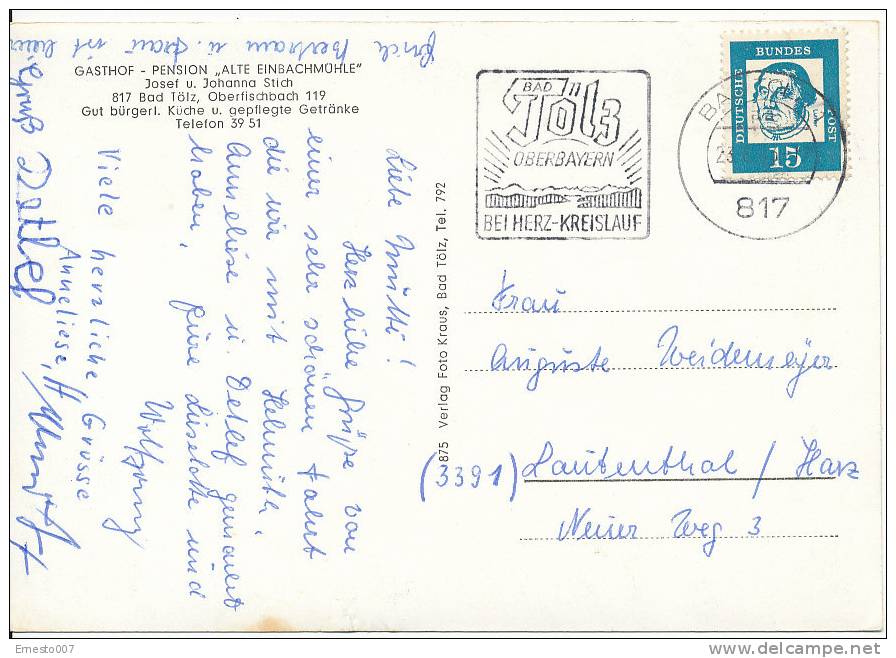 GASTHOF - PENSION „ALTE EINBACHMÜHLE"
Josef u. Johanna Stich
817 Bad Tölz, Oberfischbach 119
Gut bürgerl. Küche u. gepflegte Getränke
Telefon 39 51
Liebe Mutti!
Herzliche Grüße von
einer sehr schönen Fahrt
die wir mit Helmuth,
Anneliese u. Detlef gemacht
haben, Eure Liselotte und
Wolfgang
Viele herzliche Grüsse
Anneliese,
Gruß Detlef
Bertram u. Frau ist
875 Verlag Foto Kraus, Bad Tölz, Tel. 792
BAD
Tölz
OBERBAYERN
BEI HERZ-KREISLAUF
BA
23
817
DEUTSCHE
BUNDES
POST
15
Frau
Auguste Weidemeyer
(3391) Lautenthal / Harz
Neuer Weg 3
Ernesto007